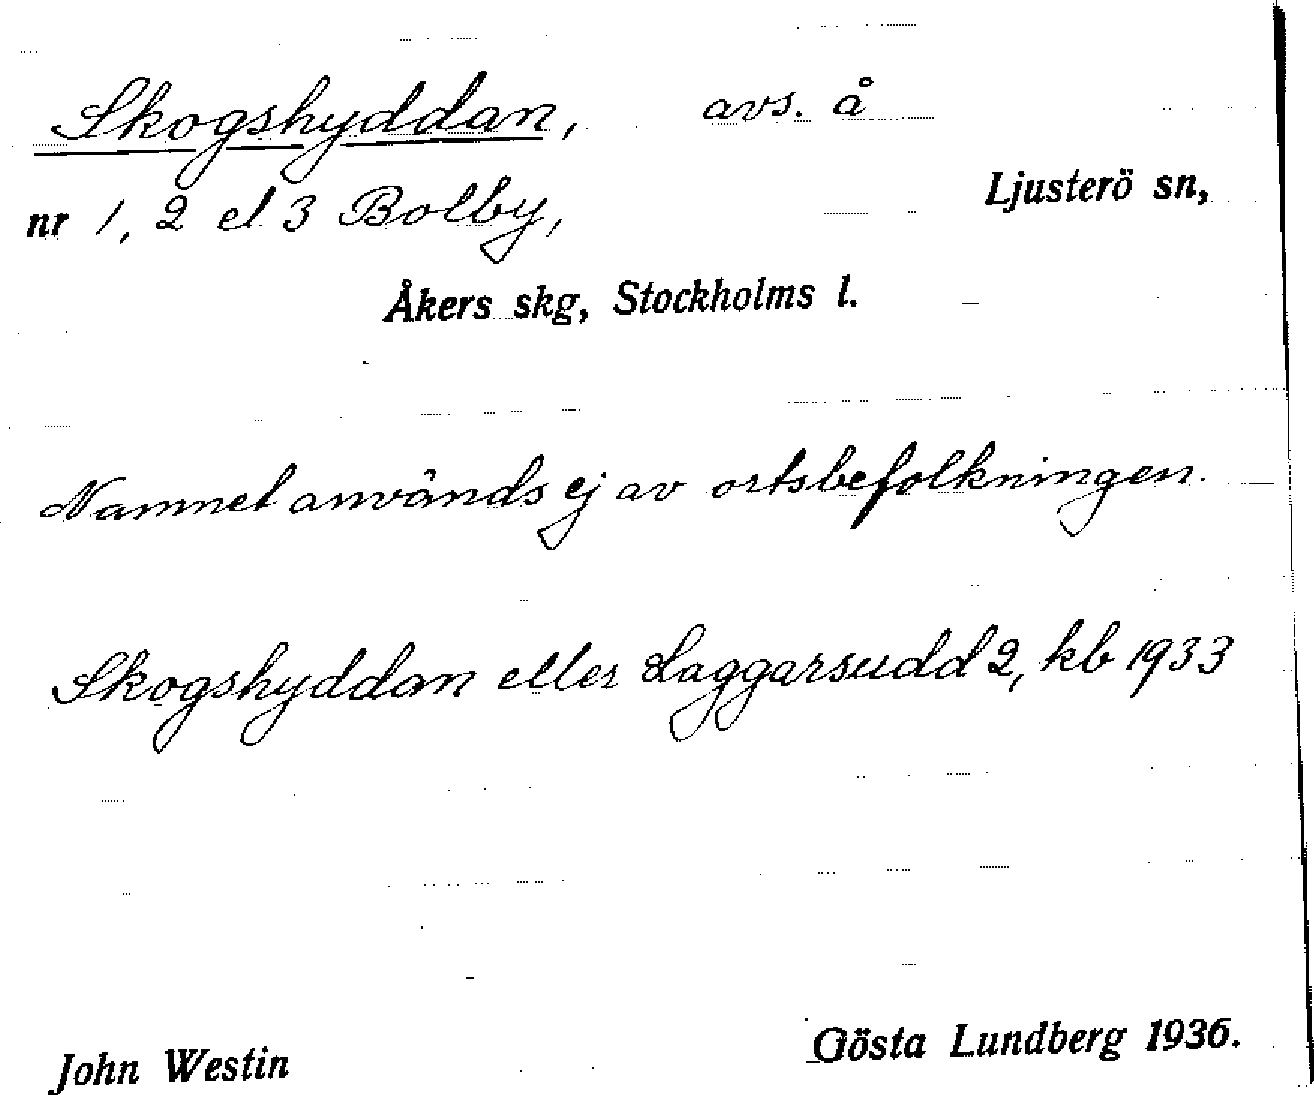 Skogshyddan, avs. å
Ljusterö sn,
nr 1, 2 el 3 Bolby,
Åkers skg, Stockholms l.
Namnet används ej av ortsbefolkningen.
Skogshyddan eller Laggarsudd 2, kb 1933
John Westin
Gösta Lundberg 1936.